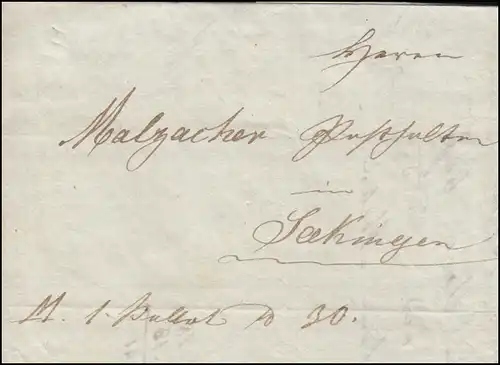 Herrn
Malzacher Posthalter
in
Säckingen
M. 1. Paket 30.